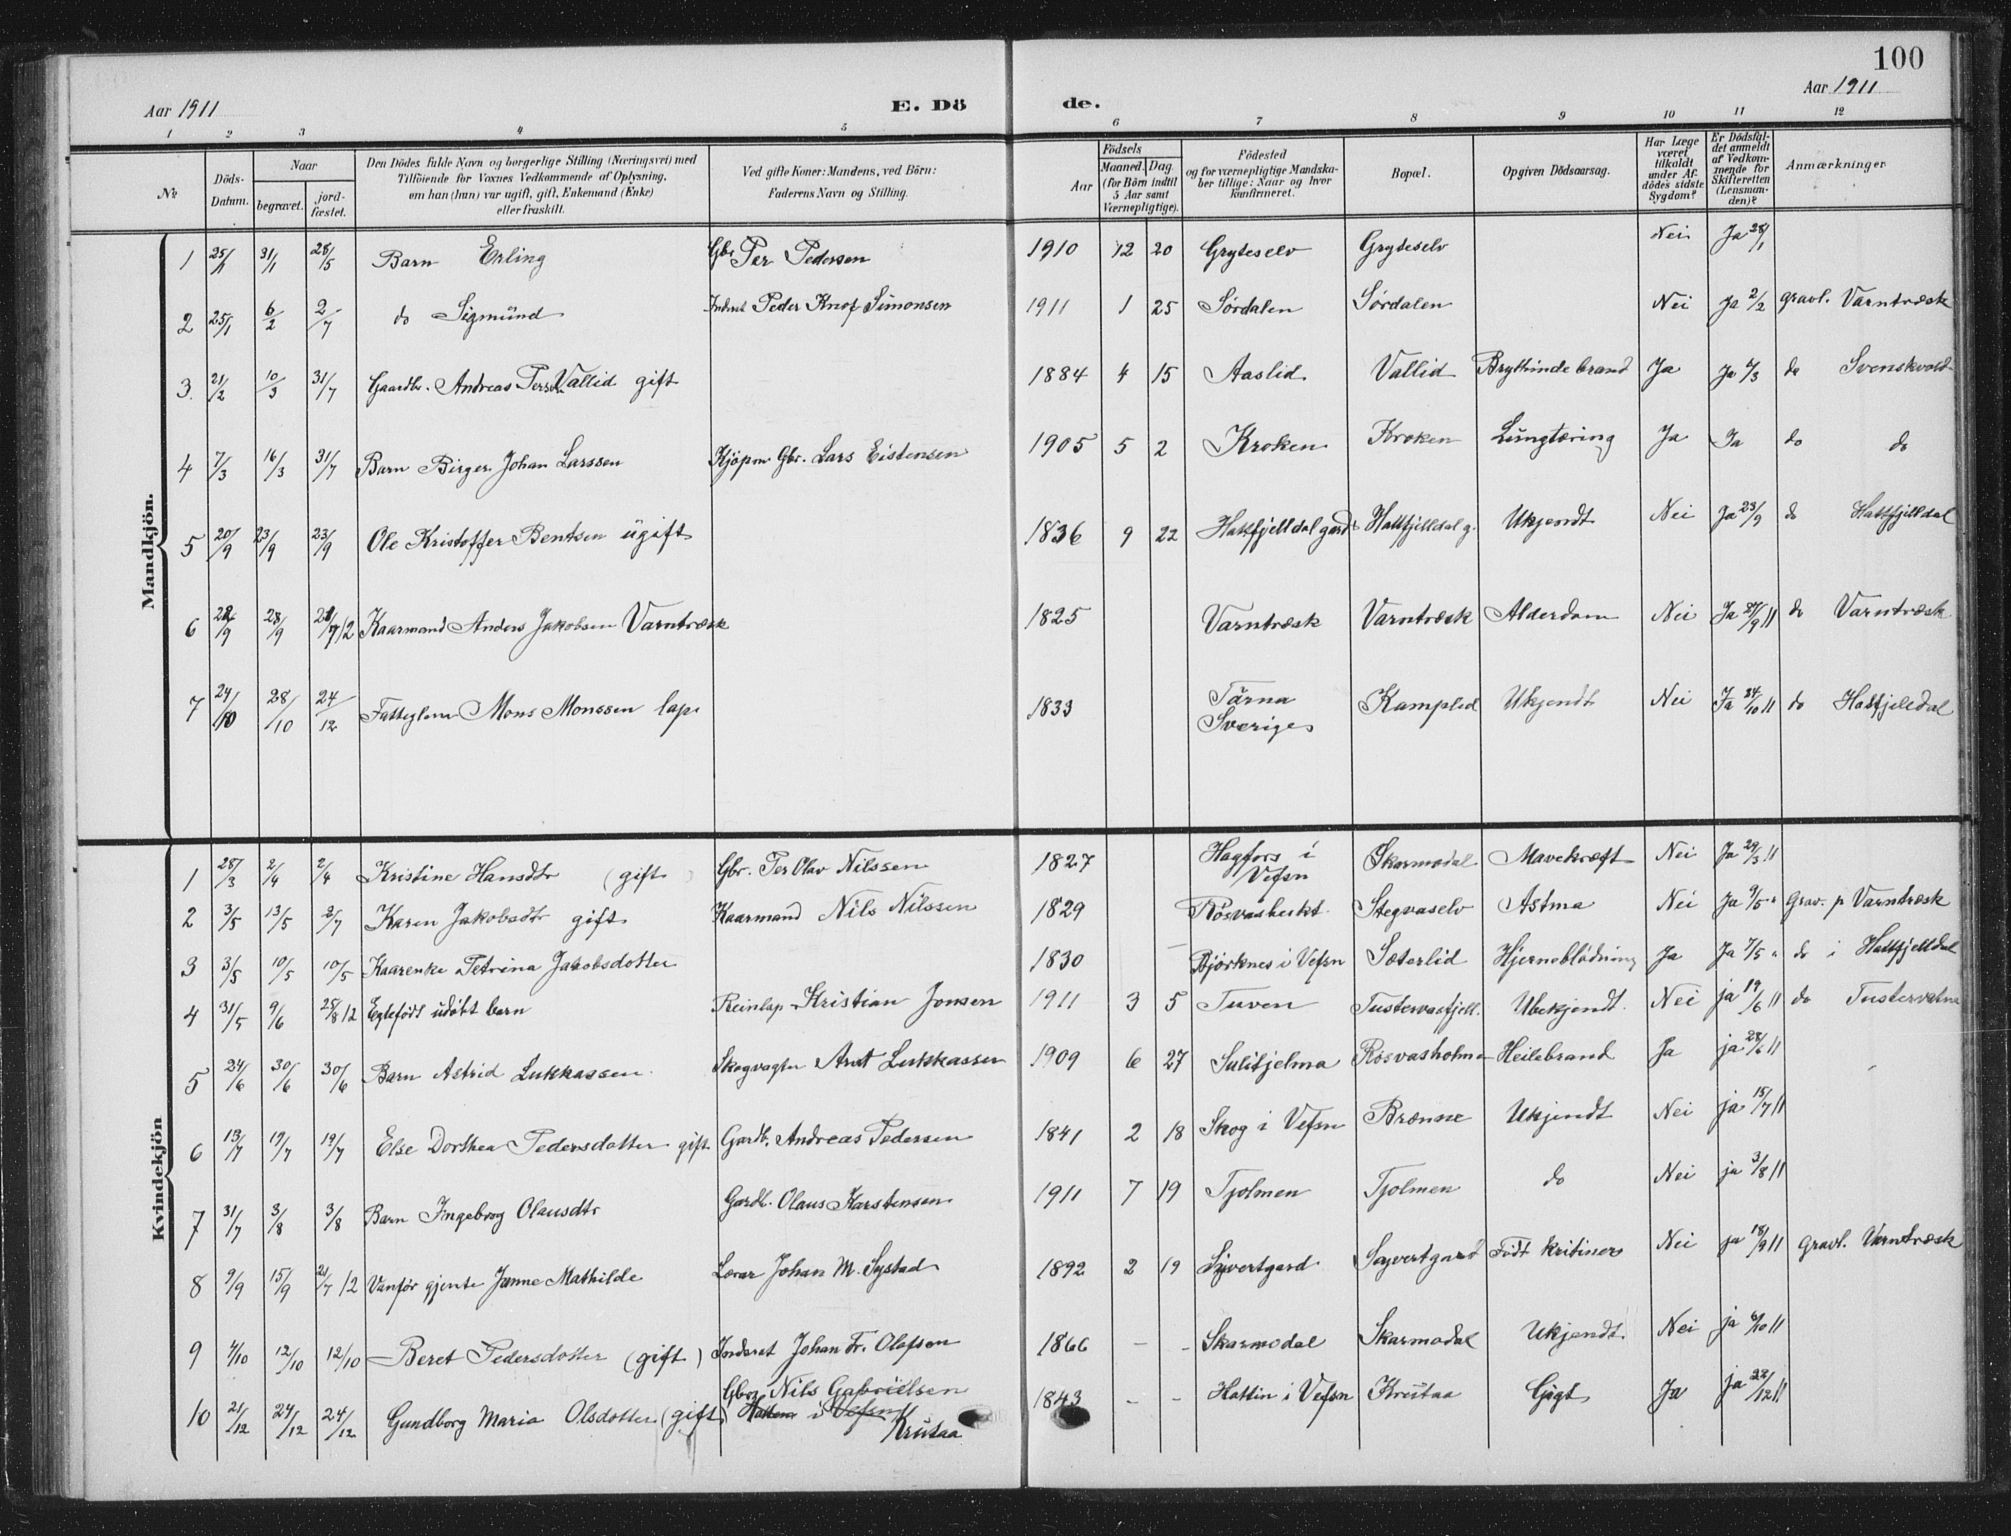 100
Aar 1911 E. Dö de. Aar 1911
1 2 3 4 5 6 7 8 9 10 11 12
№ Döds-Datum. Naar begravet. jord-fæstet. Den Dödes fulde Navn og borgerlige Stilling (Næringsvei) med Tilföiende for Voxnes Vedkommende af Oplysning, om han (hun) var ugift, gift, Enkemand (Enke) eller fraskilt. Ved gifte Koner: Mandens, ved Börn: Faderens Navn og Stilling. Födsels Aar Maaned. Dag (for Börn indtil 5 Aar samt Værnepligtige). Födested og for værnepligtige Mandskaber tillige: Naar og hvor konfirmeret. Bopæl. Opgiven Dödsaarsag. Har Læge været tilkaldt under Afdödes sidste Sygdom? Er Dödsfaldet anmeldt af Vedkommende for Skifteretten (Lensmanden)? Anmærkninger
Mandkjön.
1 25/1 31/1 28/5 Barn Erling Gbr Per Pedersen 1910 12 20 Gryteselv Gryteselv Nei Ja 28/1
2 25/1 6/2 2/7 do Sigmund Peder Knof Simonsen 1911 1 25 Sørdalen Sørdalen Nei Ja 2/2 gravl. Varntræsk
3. 21/2 10/3 31/7 Gaardbr. Andreas Persen Vallid gift 1884 4 15 Aaslid Vallid Brysthindebrand Ja Ja /3 do Svenskvold
4 7/3 16/3 31/7 Barn Birger Johan Larssen Kjöpm Gbr. Lars Eistensen 1905 5 2 Kroken Kroken Lungtæring Ja Ja do do
5 20/9 23/9 23/9 Ole Kristoffer Bentsen ugift 1836 9 22 Hatfjelldal gard Hatfjelldal g. Ukjendt Nei Ja 23/9 do Hatfjelldal
6 22/9 28/9 21/7 12 Kaarmand Anders Jakobsen Varntræsk 1825 Varntræsk Varntræsk Alderdom Nei Ja 27/9 11 do Varntræsk
7 24/10 28/10 24/12 Fattiglem Mons Monssen lap 1833 Tärna Sverige Kamplid Ukjendt Nei Ja 24/10 11 do Hatfjelldal
Kvindekjön
1 28/3 2/4 2/4 Kristine Hansdtr (gift) Gbr. Per Olav Nilssen 1827 Hagfors i Vefsn Skarmodal Mavekræft Nei Ja 29/3 11
2 3/5 13/5 2/7 Karen Jakobsdtr gift Kaarmand Nils Nilssen 1829 Røsvasbukt Stegvaselv Astma Nei Ja 9/5 " Grav. p Varntræsk
3 3/5 10/5 10/5 Kaarenke Petrina Jakobsdotter 1830 Bjørknes i Vefsn Sæterlid Hjerneblødning Ja Ja 7/5 " do i Hatfjelldal
4 31/5 9/6 28/8 12 Egtefødt udøbt barn Reinlap Kristian Jonsen 1911 3 5 Tuven Tustervasfjell. Ubekjendt. Nei ja 19/6 11 do Tustervatna
5 24/6 30/6 30/6 Barn Astrid Lukkassen Skogvagter Arnt Lukkassen 1909 6 27 Sulitjelma Røsvasholmen Heilebrand Ja ja 28/6 11
6 13/7 19/7 19/7 Else Dorthea Pedersdotter gift Gardb. Andreas Pedersen 1841 2 18 Skog i Vefsn Brænne Ukjendt Nei ja 15/7 11
7 31/7 3/8 3/8 Barn Ingeborg Olausdtr Gardb. Olaus Karstensen 1911 7 19 Tjolmen Tjolmen do Nei ja 3/8 11
8 9/9 15/9 21/7 12 Vanfør gjente Janne Mathilde Lærar Johan M. Systad 1892 2 19 Sivertgard Sivertgard Født kritiner Nei ja 18/9 11 gravl. Varntræsk
9 4/10 12/10 12/10 Beret Pedersdotter (gift) Inderst Johan Fr. Olafsen 1866 - - Skarmodal Skarmodal Ukjendt Nei ja 6/10 11
10 21/12 24/12 24/12 Gundborg Maria Olsdotter (gift) Gbr. Nils Gabrielsen Hattem i Vefsn Krutaa 1843 - - Hattin i Vefsn Krutaa Gigt Ja ja 22/12 11